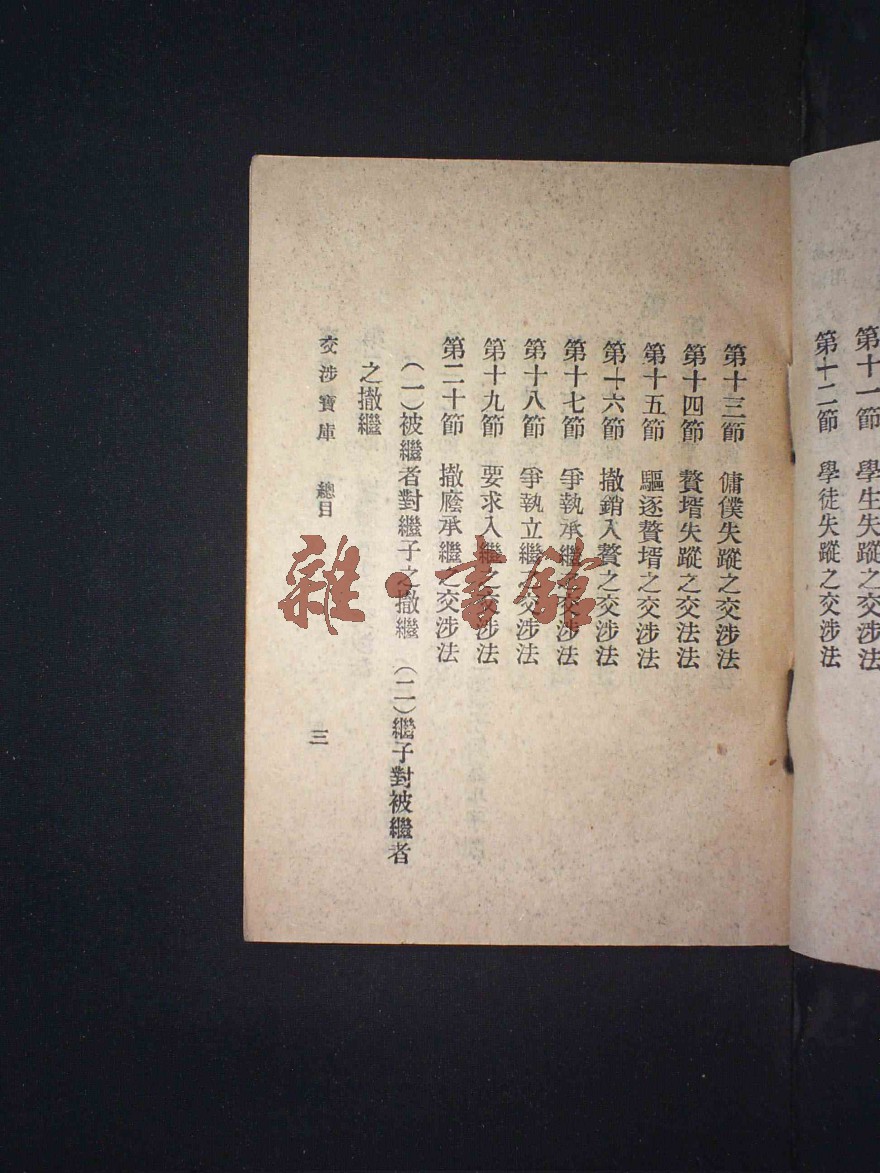 第十一節　學生失蹤之交涉法
第十二節　學徒失蹤之交涉法
第十三節　傭僕失蹤之交涉法
第十四節　贅壻失蹤之交法法
第十五節　驅逐贅壻之交涉法
第十六節　撤銷入贅之交涉法
第十七節　爭執承繼之交涉法
第十八節　爭執立繼之交涉法
第十九節　要求入繼之交涉法
第二十節　撤廢承繼之交涉法
（一）被繼者對繼子之撤繼　（二）繼子對被繼者
之撤繼
交涉寶庫　總目
三
雜·書館